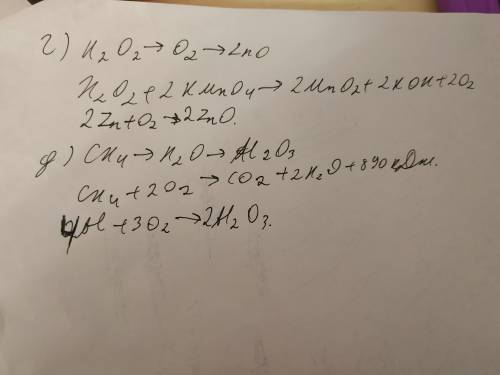 г) H2O2→O2→ZnO
H2O2+2KMnO4→2MnO2+2KOH+2O2
2Zn+O2→2ZnO.
д) CH4→H2O→Al2O3
CH4+2O2→CO2+2H2O+890кДж.
4Al+3O2→2Al2O3.